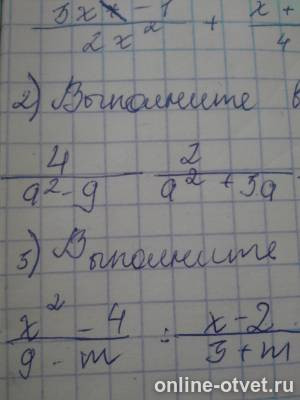 3x - 1 / 2x² + x + / 4
2) Выполните в
4 / a² - 9 2 / a² + 3a
3) Выполните
x² - 4 / 9 - m : x - 2 / 3 + m
online-otvet.ru